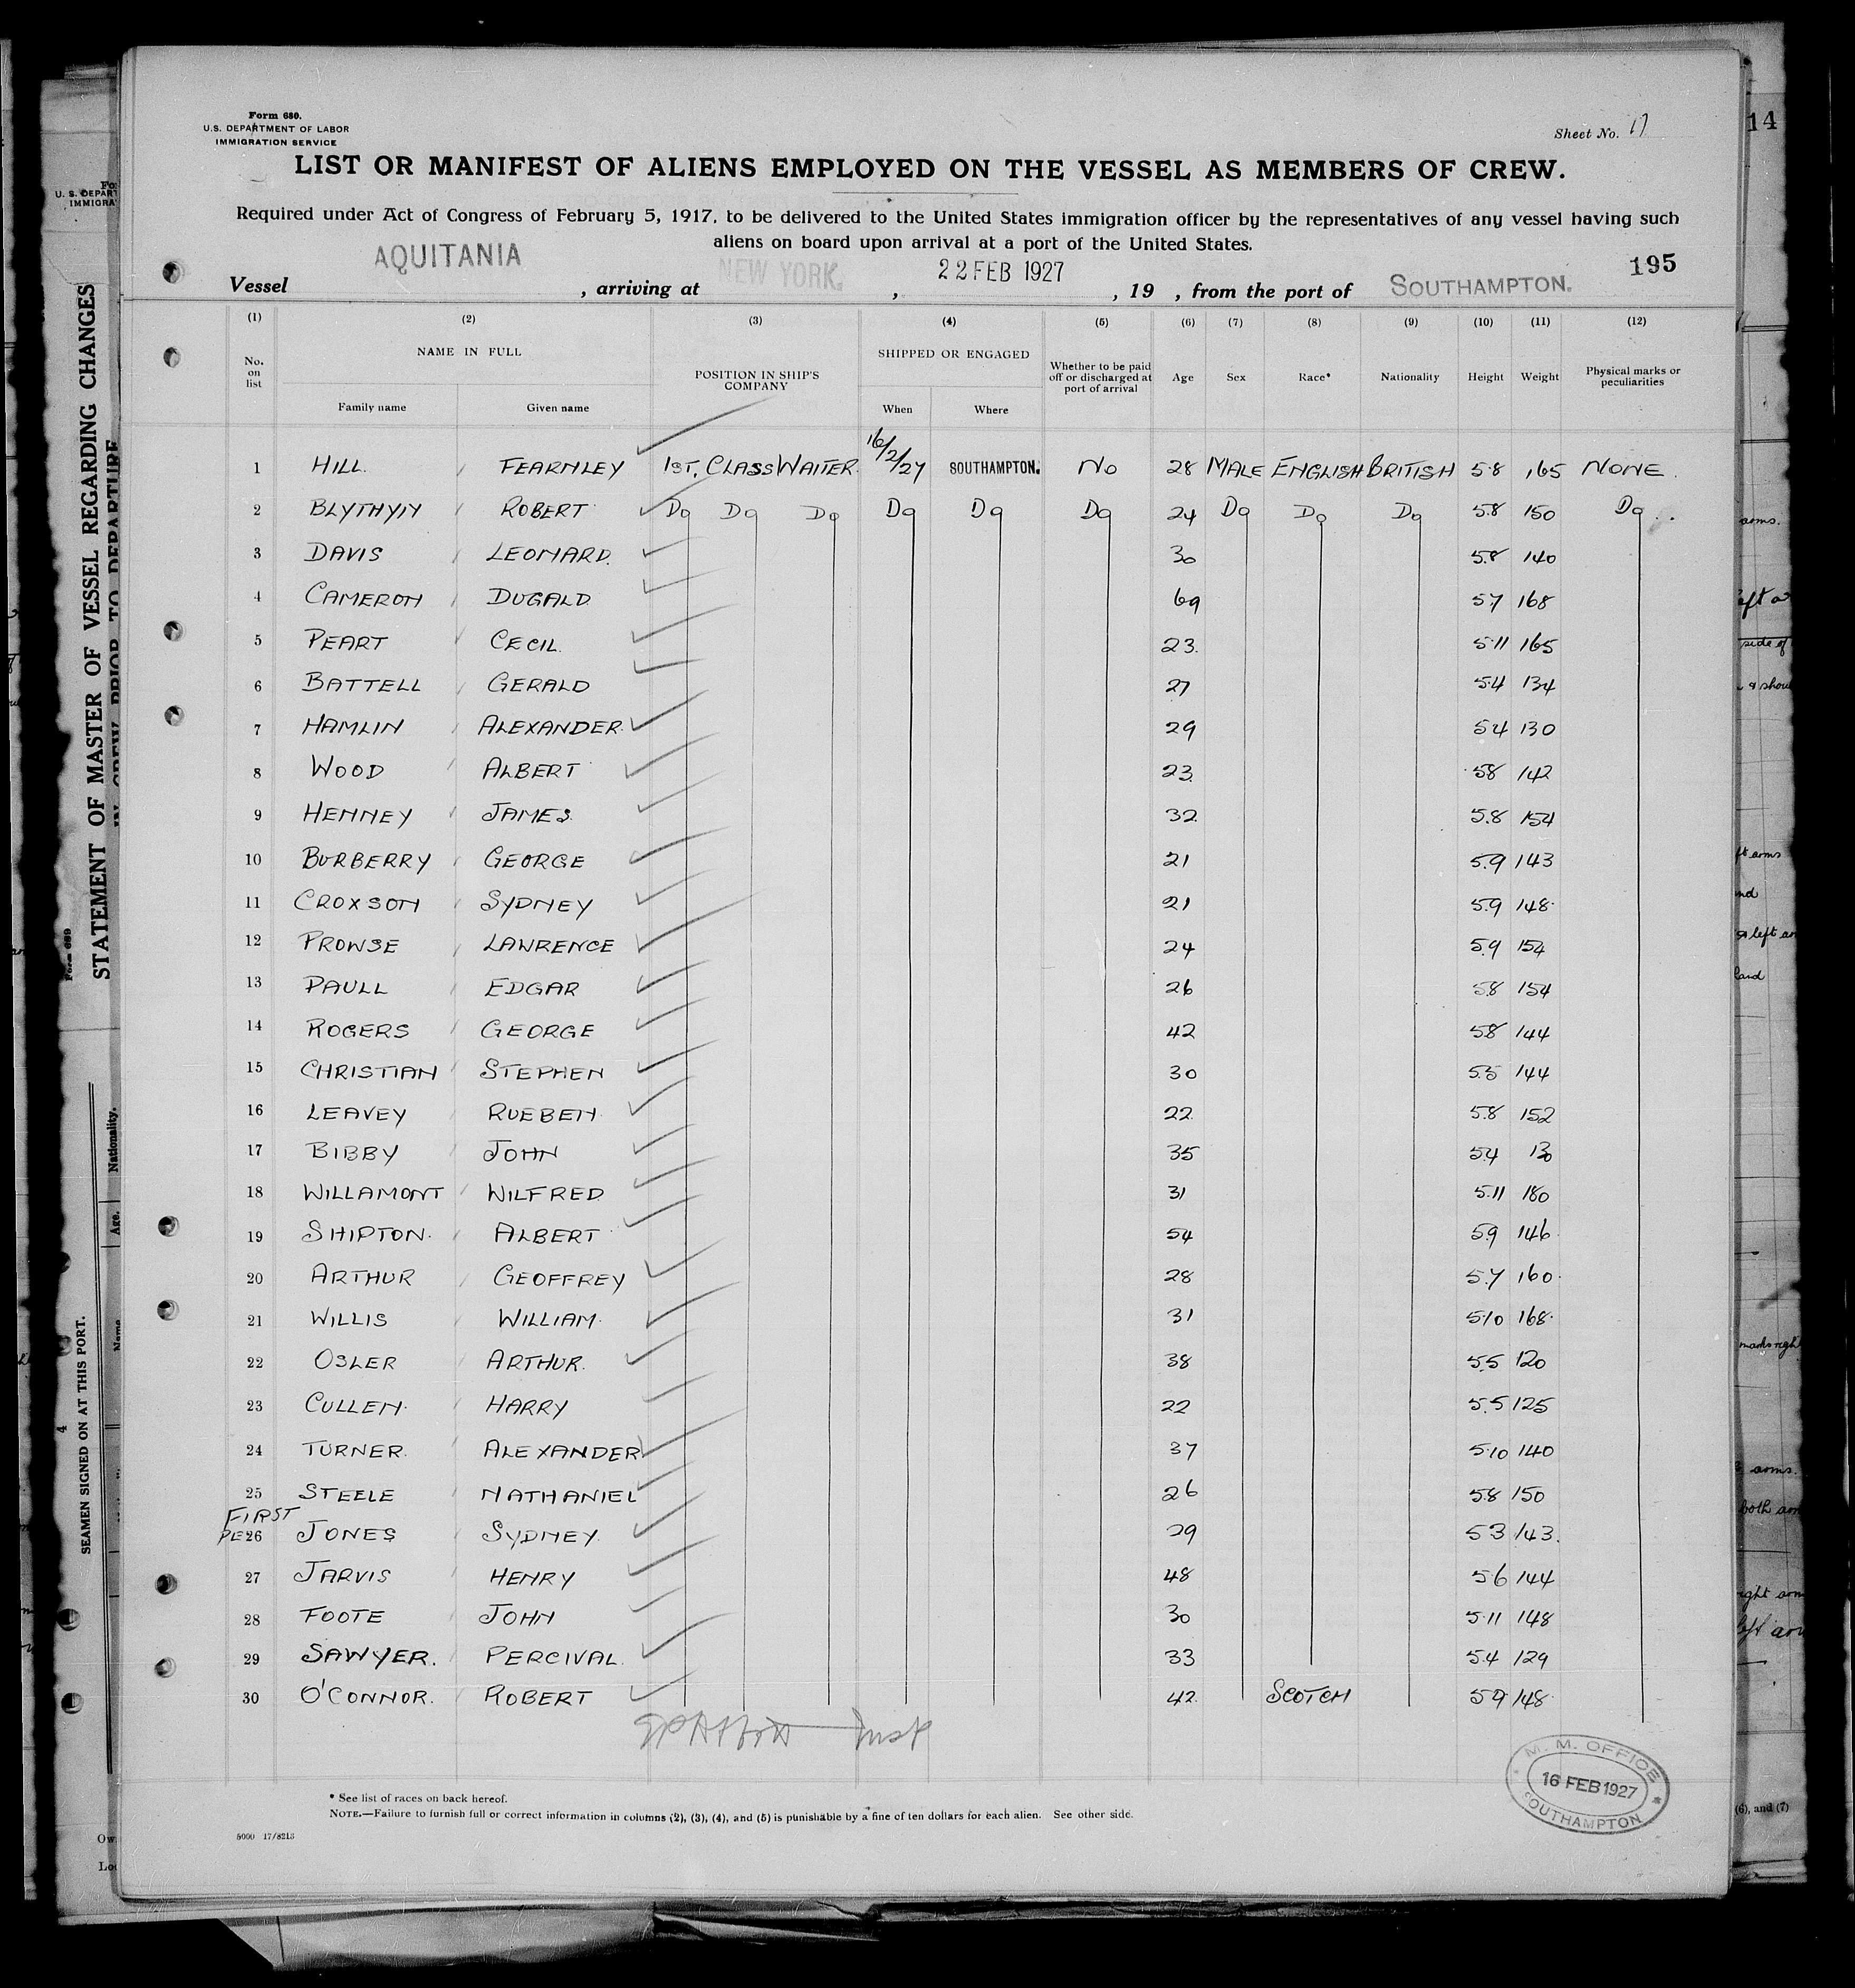 Form 680.
U.S. DEPARTMENT OF LABOR
IMMIGRATION SERVICE
Sheet No. 17
14
LIST OR MANIFEST OF ALIENS EMPLOYED ON THE VESSEL AS MEMBERS OF CREW.
Required under Act of Congress of February 5, 1917, to be delivered to the United States immigration officer by the representatives of any vessel having such
aliens on board upon arrival at a port of the United States.
195
Vessel AQUITANIA, arriving at NEW YORK., 22 FEB 1927, 19 , from the port of SOUTHAMPTON.
(1) (2) (3) (4) (5) (6) (7) (8) (9) (10) (11) (12)
No. on list NAME IN FULL POSITION IN SHIP'S COMPANY SHIPPED OR ENGAGED Whether to be paid off or discharged at port of arrival Age Sex Race* Nationality Height Weight Physical marks or peculiarities
Family name Given name When Where
1 HILL. FEARNLEY 1ST. CLASS WAITER 16/2/27 SOUTHAMPTON. NO 28 MALE ENGLISH BRITISH 5.8 165 NONE.
2 BLYTHYN ROBERT Do Do Do Do Do Do 24 Do Do Do 5.8 150 Do
3 DAVIS LEONARD. 30 5.8 140
4 CAMERON DUGALD 69 5.7 168
5 PEART CECIL. 23. 5.11 165
6 BATTELL GERALD 27 5.4 134
7 HAMLIN ALEXANDER. 29 5.4 130
8 WOOD ALBERT 23. 5.8 142
9 HENNEY JAMES. 32. 5.8 154
10 BURBERRY GEORGE 21 5.9 143
11 CROXSON SYDNEY 21 5.9 148.
12 PROWSE LAWRENCE 24 5.9 154
13 PAULL EDGAR 26 5.8 154
14 ROGERS GEORGE 42 5.8 144
15 CHRISTIAN STEPHEN 30 5.5 144
16 LEAVEY RUEBEN. 22. 5.8 152
17 BIBBY JOHN 35 5.4 130
18 WILLAMONT WILFRED. 31 5.11 180
19 SHIPTON. ALBERT 54 5.9 146
20 ARTHUR GEOFFREY 28 5.7 160.
21 WILLIS WILLIAM. 31 5.10 168.
22 OSLER ARTHUR. 38 5.5 120
23 CULLEN. HARRY 22 5.5 125
24 TURNER. ALEXANDER 37 5.10 140
25 STEELE NATHANIEL 26 5.8 150
FIRST
26 JONES SYDNEY. 29 5.3 143.
27 JARVIS HENRY 48 5.6 144
28 FOOTE JOHN 30 5.11 148
29 SAWYER. PERCIVAL. 33 5.4 129
30 O'CONNOR. ROBERT 42. SCOTCH 5.9 148
M. M. OFFICE
16 FEB 1927
SOUTHAMPTON
* See list of races on back hereof.
NOTE.—Failure to furnish full or correct information in columns (2), (3), (4), and (5) is punishable by a fine of ten dollars for each alien. See other side.
5000 17/8213
STATEMENT OF MASTER OF VESSEL REGARDING CHANGES
IN CREW PRIOR TO DEPARTURE
Form 689
SEAMEN SIGNED ON AT THIS PORT.
Nationality.
Age.
Name
(6), and (7)